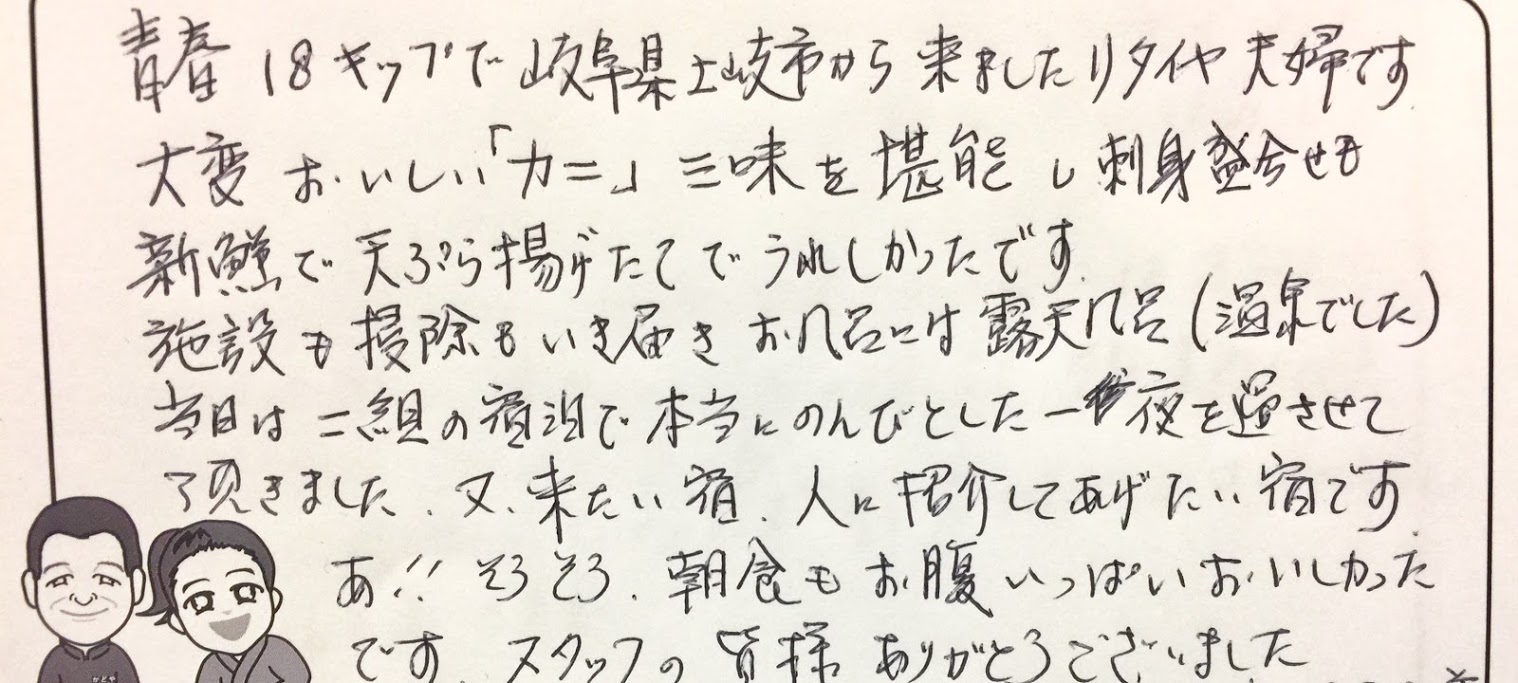 青春18キップで岐阜県土岐市から来ましたリタイヤ夫婦です
大変おいしい「カニ」三味を堪能し刺身盛合せも
新鮮で天ぷら揚げたてでうれしかったです。
施設も掃除もいき届きお風呂には露天風呂(温泉でした)
当日は二組の宿泊で本当にのんびとした一夜を過させて
頂きました。又、来たい宿、人に紹介してあげたい宿です。
あ!!そろそろ、朝食もお腹いっぱいおいしかった
です。スタッフの皆様ありがとうございました
かどや